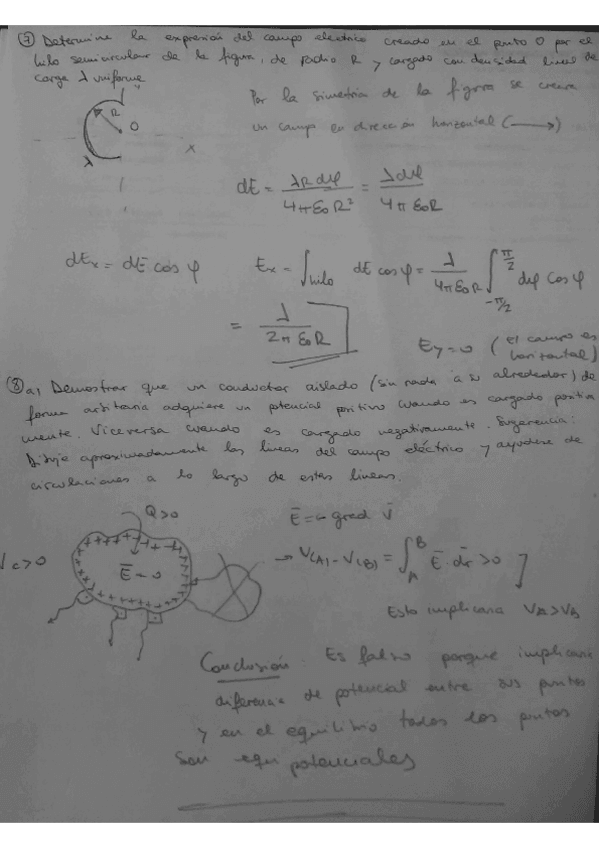 ⑦ Determine la expresión del campo eléctrico creado en el punto O por el
hilo semicircular de la figura, de radio R y cargado con densidad lineal de
carga λ uniforme
R
O
λ
x
Por la simetría de la figura se creará
un campo en dirección horizontal (⟶)
dE = λR dφ / 4πε₀R² = λdφ / 4πε₀R
dEx = dE cos φ    Ex = ∫hilo dE cos φ = λ / 4πε₀R ∫_{-π/2}^{π/2} dφ cos φ
= λ / 2πε₀R
Ey = 0 (el campo es horizontal)
⑧ a, Demostrar que un conductor aislado (sin nada a su alrededor) de
forma arbitraria adquiere un potencial positivo cuando es cargado positiva
mente. Viceversa cuando es cargado negativamente. Sugerencia:
Dibuje aproximadamente las líneas del campo eléctrico y ayúdese de
circulaciones a lo largo de estas líneas.
Q>0
Vc>0
Ē=0
Ē = - grad V̄
→ V(A) - V(B) = ∫_A^B Ē·dr̄ >0
Esto implicaría VA>VB
Conclusión: Es falso porque implicaría
diferencia de potencial entre sus puntos
y en el equilibrio todos los puntos
son equipotenciales